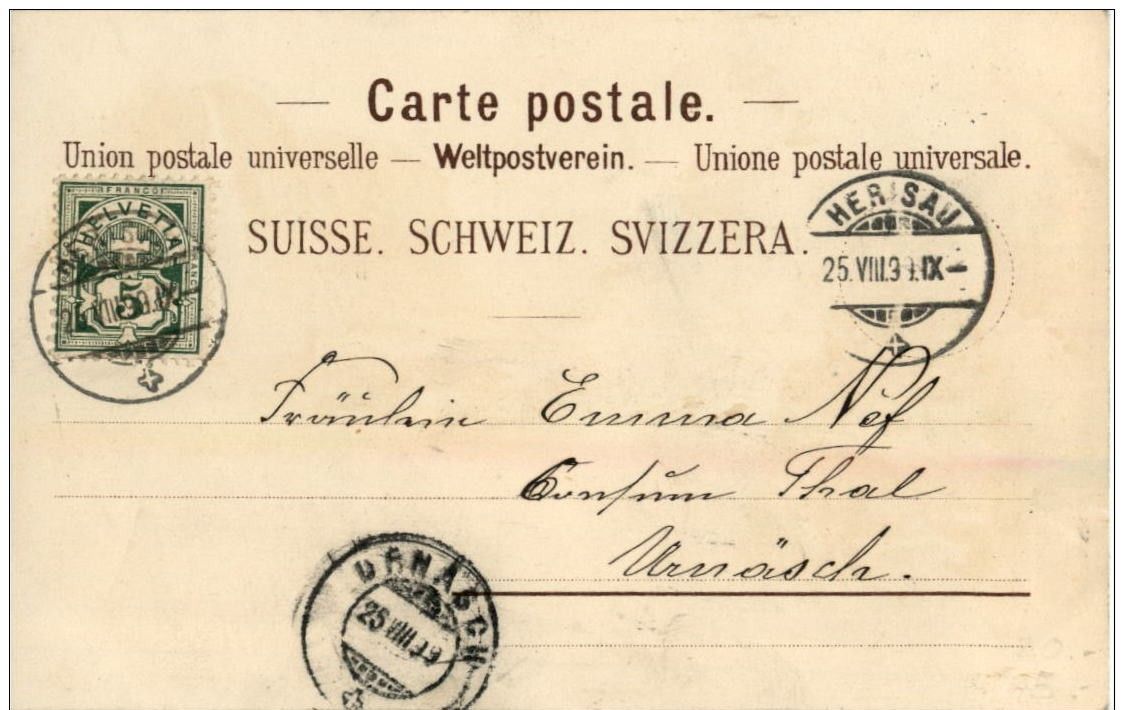 — Carte postale. —
Union postale universelle — Weltpostverein. — Unione postale universale.
SUISSE. SCHWEIZ. SVIZZERA.
FRANCO
HELVETIA
5
HERISAU
25.VIII.9 .IX-
Fräulein Emma Nef
Consum Thal
Urnäsch.
URNÄSCH
25.VIII.99